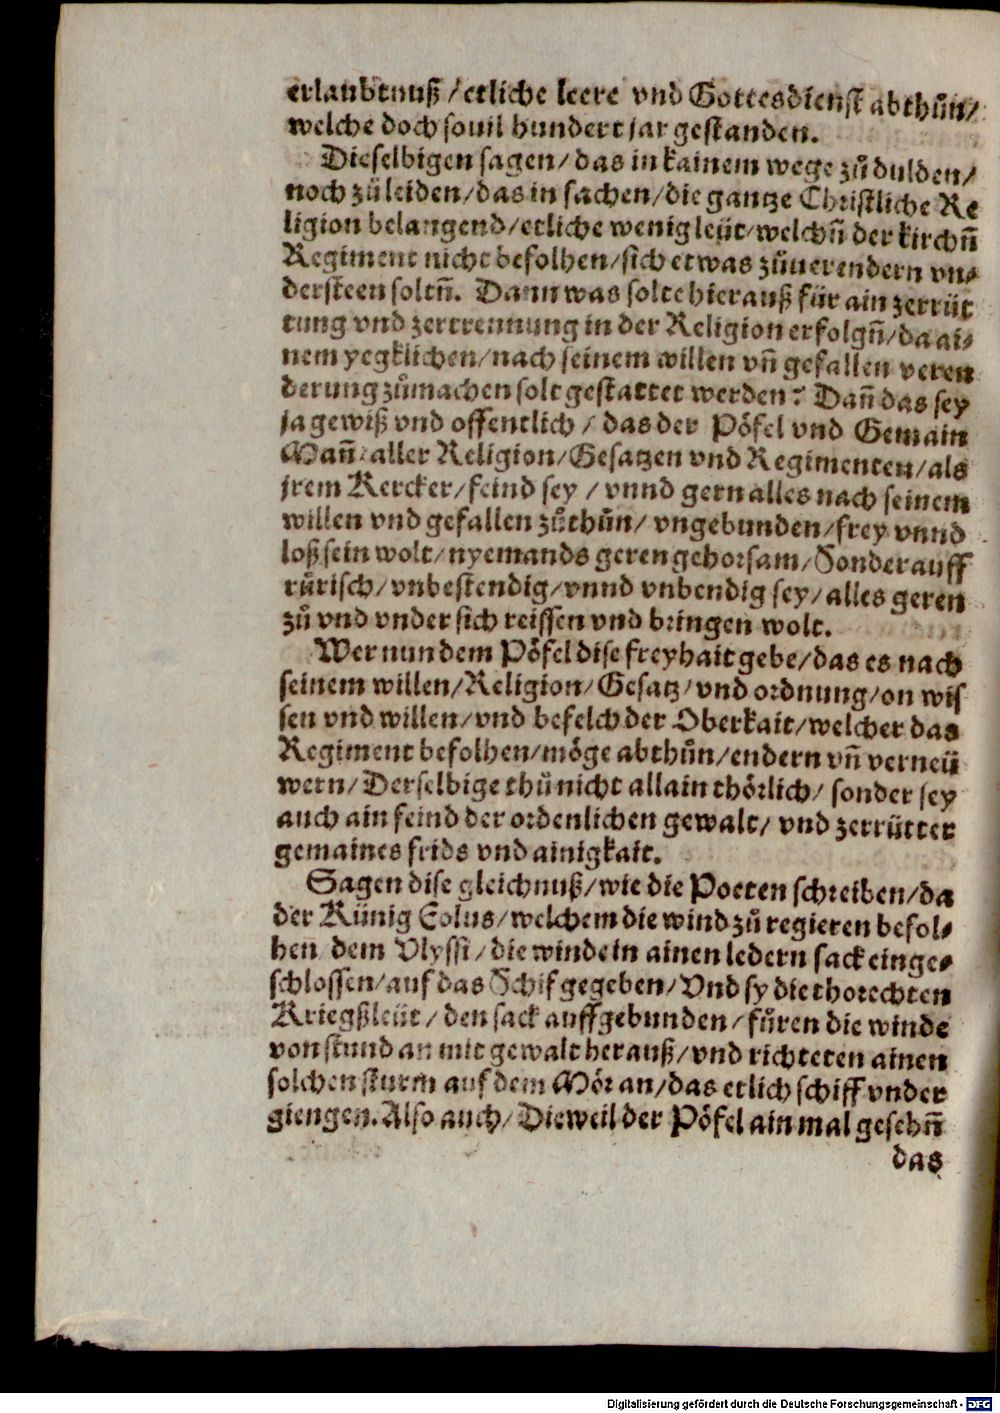 erlaubtnuß / etliche leere vnd Gottesdienst abthůn /
welche doch souil hundert jar gestanden.
Dieselbigen sagen / das in kainem wege zů dulden /
noch zů leiden / das in sachen / die gantze Christliche Re
ligion belangend / etliche wenig leüt / welchñ der kirchñ
Regiment nicht befolhen / sich etwas zůuerendern vn⸗
dersteen soltñ. Dann was solte hierauß für ain zerrüt
tung vnd zertrennung in der Religion erfolgñ / da ai⸗
nem yegklichen / nach seinem willen vñ gefallen veren
derung zůmachen solt gestattet werden? Dañ das sey
ja gewiß vnd offentlich / das der Pöfel vnd Gemain
Mañ / aller Religion / Gesatzen vnd Regimenten / als
jrem Kercker / feind sey / vnnd gern alles nach seinem
willen vnd gefallen zůthůn / vngebunden / frey vnnd
loß sein wolt / nyemands geren gehorsam / Sonder auff
rürisch / vnbestendig / vnnd vnbendig sey / alles geren
zů vnd vnder sich reissen vnd bringen wolt.
Wer nun dem Pöfel dise freyhait gebe / das es nach
seinem willen / Religion / Gesatz / vnd ordnung / on wis
sen vnd willen / vnd befelch der Oberkait / welcher das
Regiment befolhen / möge abthůn / endern vñ verneü
wern / Derselbige thů nicht allain thörlich / sonder sey
auch ain feind der ordenlichen gewalt / vnd zerrüttet
gemaines frids vnd ainigkait.
Sagen dise gleichnuß / wie die Poeten schreiben / da
der Künig Eolus / welchem die wind zů regieren befol⸗
hen dem Vlyssi / die winde in ainen ledern sack einge⸗
schlossen / auf das Schif gegeben / Vnd sy die thorechten
Kriegßleüt / den sack auffgebunden / füren die winde
von stund an mit gewalt herauß / vnd richteten ainen
solchen sturm auf dem Mör an / das etlich schiff vnder
giengen. Also auch / Dieweil der Pöfel ain mal gesehñ
das
Digitalisierung gefördert durch die Deutsche Forschungsgemeinschaft - DFG